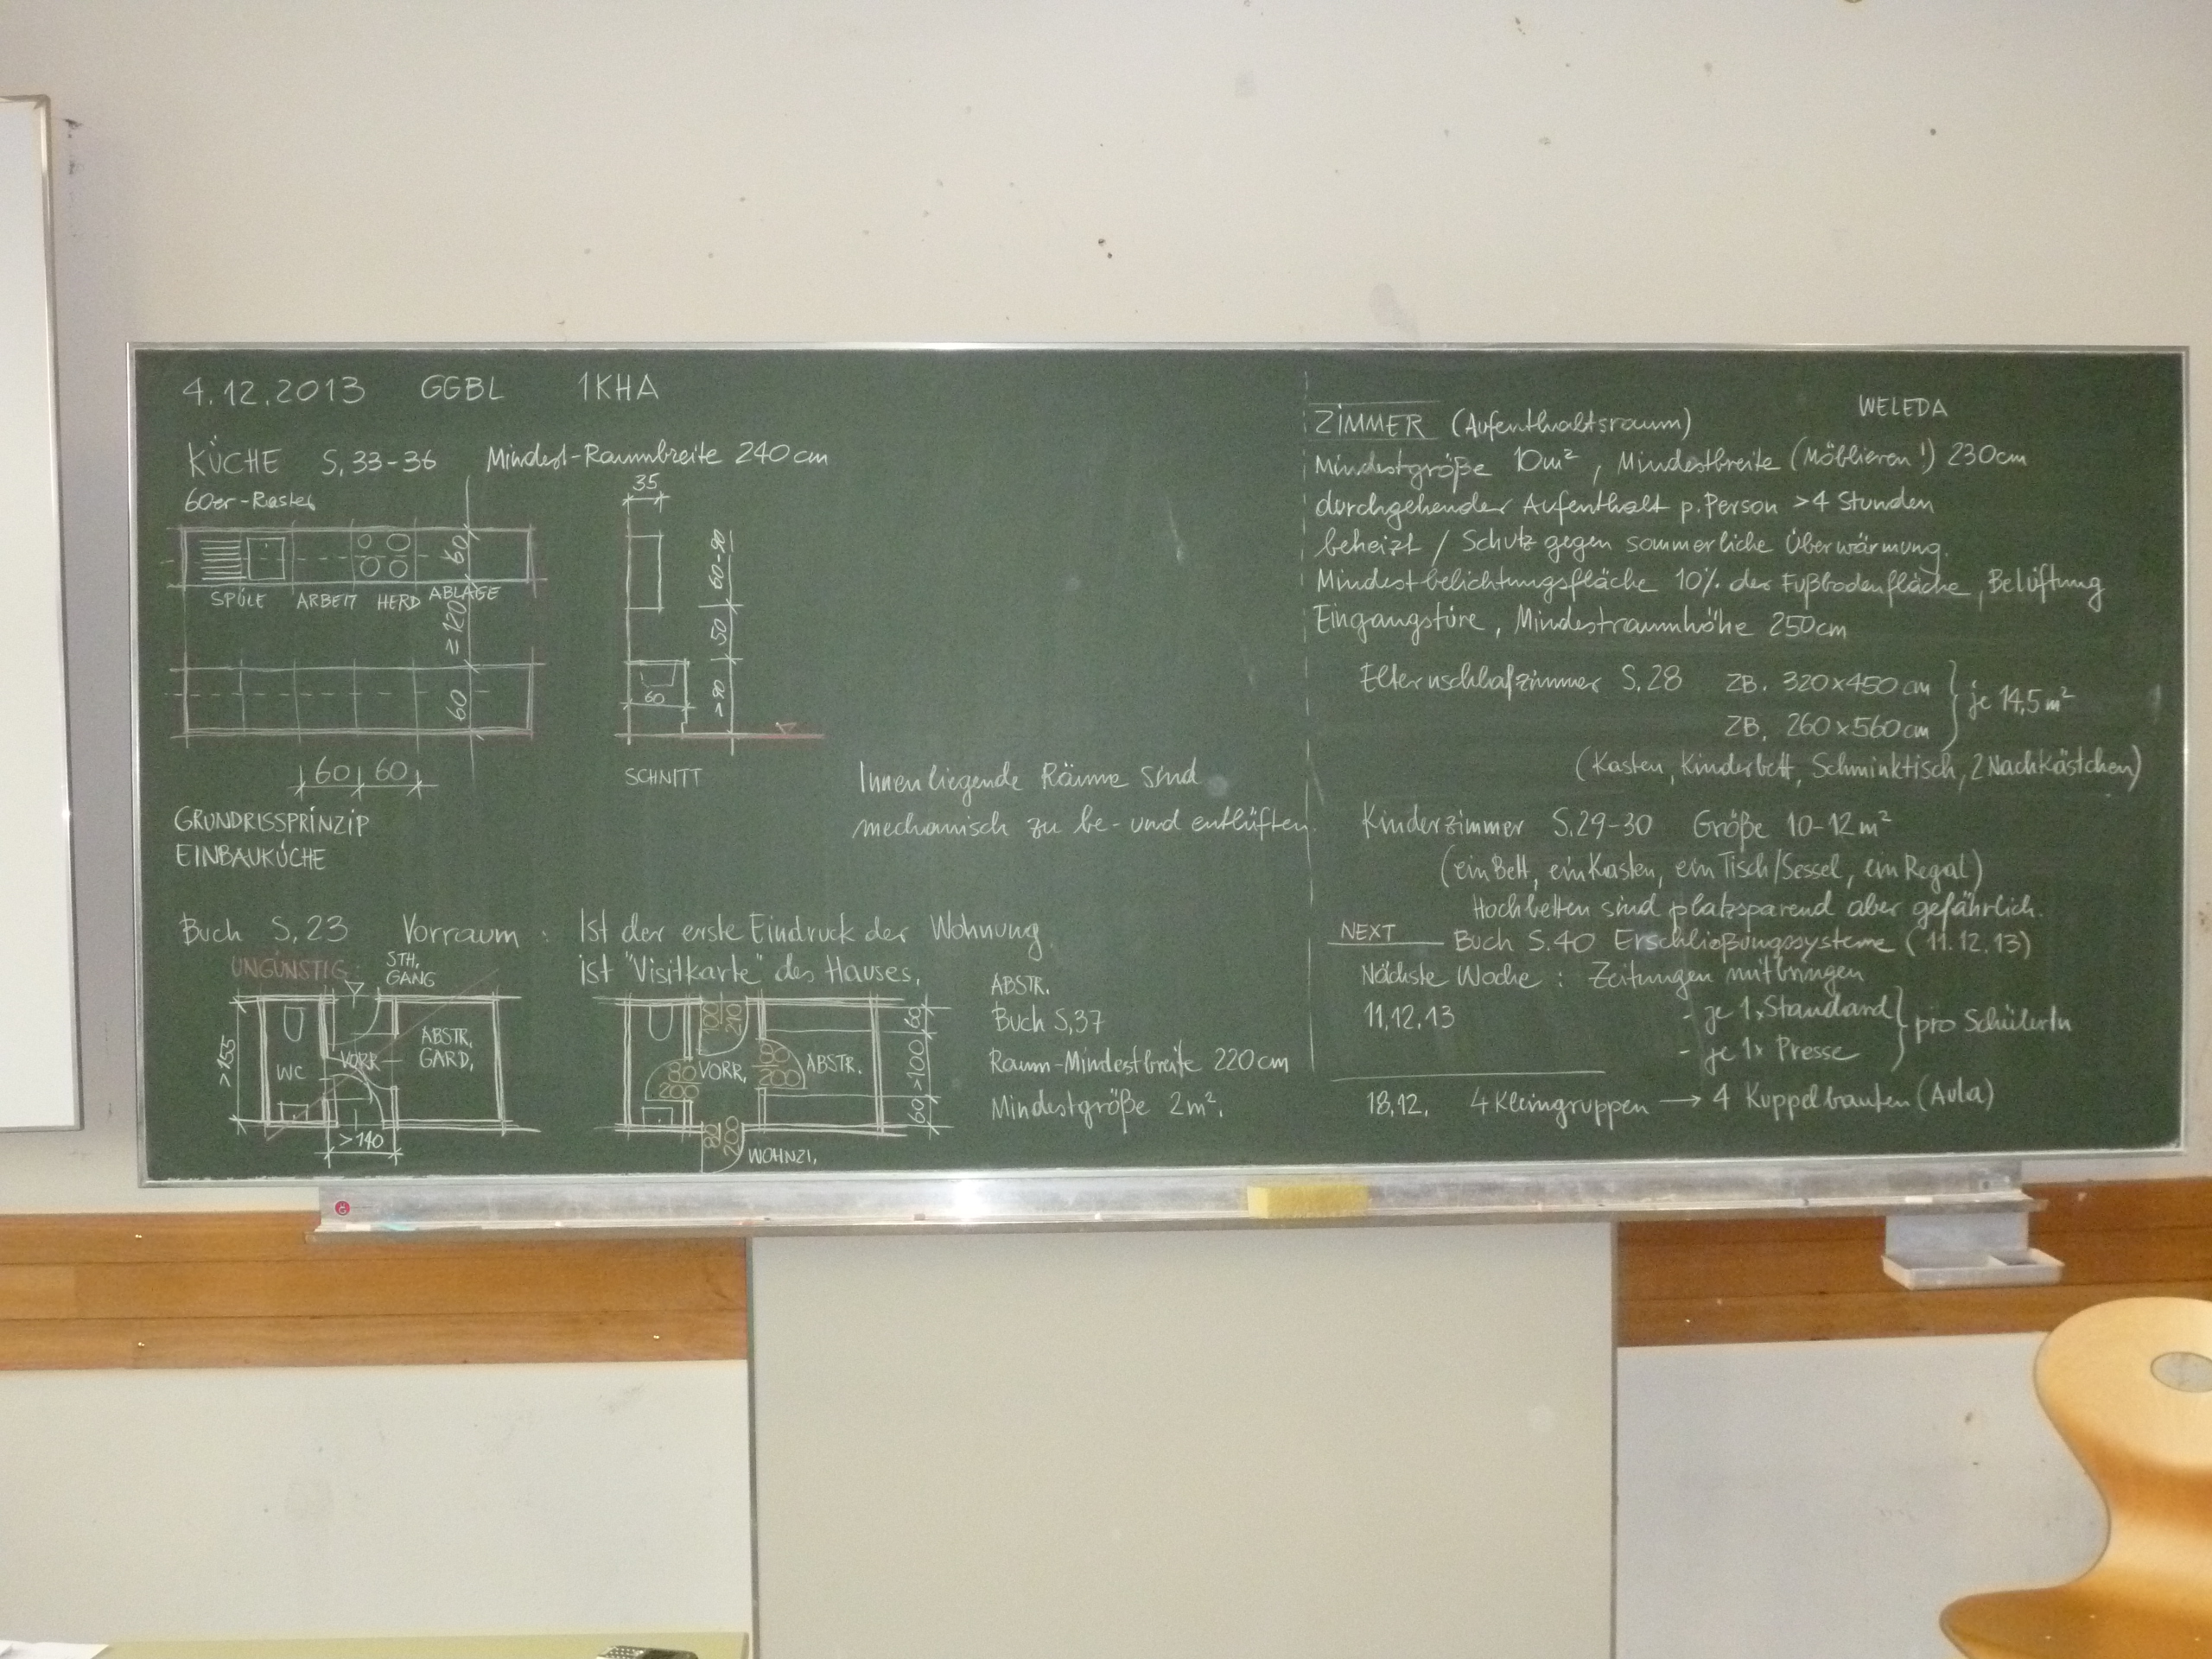 4.12.2013 GGBL 1KHA
KÜCHE S. 33-36 Mindest-Raumbreite 240 cm
60er-Raster
60
SPÜLE ARBEIT HERD ABLAGE
≥120
60
60 60
GRUNDRISSPRINZIP
EINBAUKÜCHE
35
60-90
50
60
SCHNITT
Innenliegende Räume sind
mechanisch zu be- und entlüften.
Buch S. 23 Vorraum: Ist der erste Eindruck der Wohnung.
ist "Visitkarte" des Hauses.
UNGÜNSTIG:
STH.
GANG
>155
WC
VORR.
ABSTR.
GARD.
>140
100
210
80
200
VORR.
80
200
ABSTR.
60 >100 60
80
200
WOHNZI.
ABSTR.
Buch S. 37
Raum-Mindestbreite 220 cm
Mindestgröße 2m².
WELEDA
ZIMMER (Aufenthaltsraum)
Mindestgröße 10m², Mindestbreite (Möblieren!) 230cm
durchgehender Aufenthalt p. Person >4 Stunden
beheizt / Schutz gegen sommerliche Überwärmung.
Mindestbelichtungsfläche 10% der Fußbodenfläche, Belüftung
Eingangstüre, Mindestraumhöhe 250cm
Elternschlafzimmer S. 28 ZB. 320x450 cm
ZB. 260x560 cm
je 14,5 m²
(Kasten, Kinderbett, Schminktisch, 2 Nachkästchen)
Kinderzimmer S. 29-30 Größe 10-12 m²
(ein Bett, ein Kasten, ein Tisch/Sessel, ein Regal)
Hochbetten sind platzsparend aber gefährlich.
NEXT Buch S. 40 Erschließungssysteme (11.12.13)
Nächste Woche: Zeitungen mitbringen
11.12.13 - je 1x Standard
- je 1x Presse
pro SchülerIn
18.12. 4 Kleingruppen → 4 Kuppelbauten (Aula)